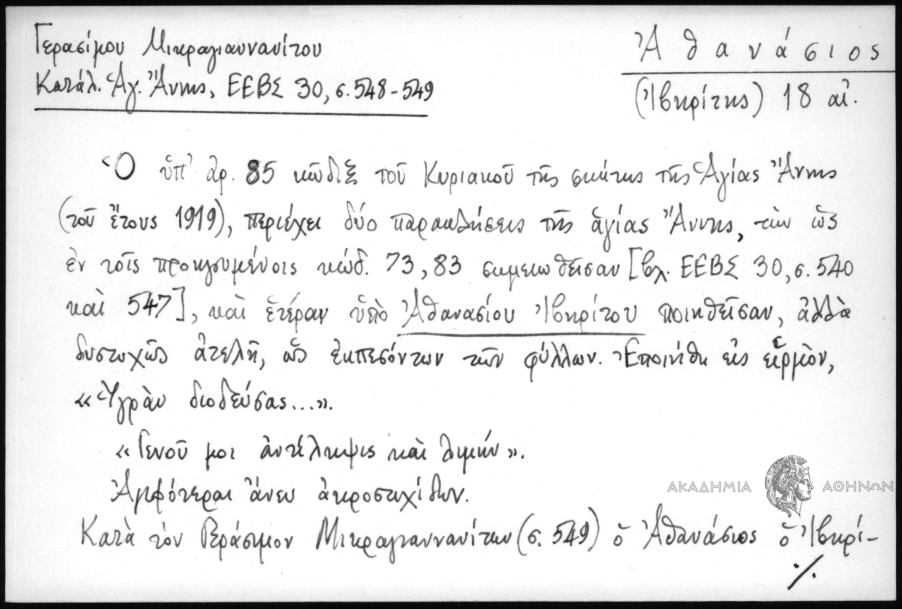 Γερασίμου Μικραγιαννανίτου
Κατάλ. Ἁγ. Ἄννης, ΕΕΒΣ 30, σ. 548-549
Ἀθανάσιος
(Ἰβηρίτης) 18 αἰ.
Ὁ ὑπ' ἀρ. 85 κῶδιξ τοῦ Κυριακοῦ τῆς σκήτης τῆς Ἁγίας Ἄννης
(τοῦ ἔτους 1919), περιέχει δύο παρακλήσεις τῆς ἁγίας Ἄννης, τὴν ὡς
ἐν τοῖς προηγουμένοις κώδ. 73, 83 σημειωθεῖσαν [βλ. ΕΕΒΣ 30, σ. 540
καὶ 547], καὶ ἑτέραν ὑπὸ Ἀθανασίου Ἰβηρίτου ποιηθεῖσαν, ἀλλὰ
δυστυχῶς ἀτελῆ, ὡς ἐκπεσόντων τῶν φύλλων. Ἐποιήθη εἰς εἱρμὸν,
«Ὑγρὰν διοδεύσας...».
«Γενοῦ μοι ἀντέληψις καὶ λιμήν».
Ἀμφότεραι ἄνευ ἀκροστιχίδων.
ΑΚΑΔΗΜΙΑ ΑΘΗΝΩΝ
Κατὰ τὸν Γεράσιμον Μικραγιαννανίτην (σ. 549) ὁ Ἀθανάσιος ὁ Ἰβηρί-
./.